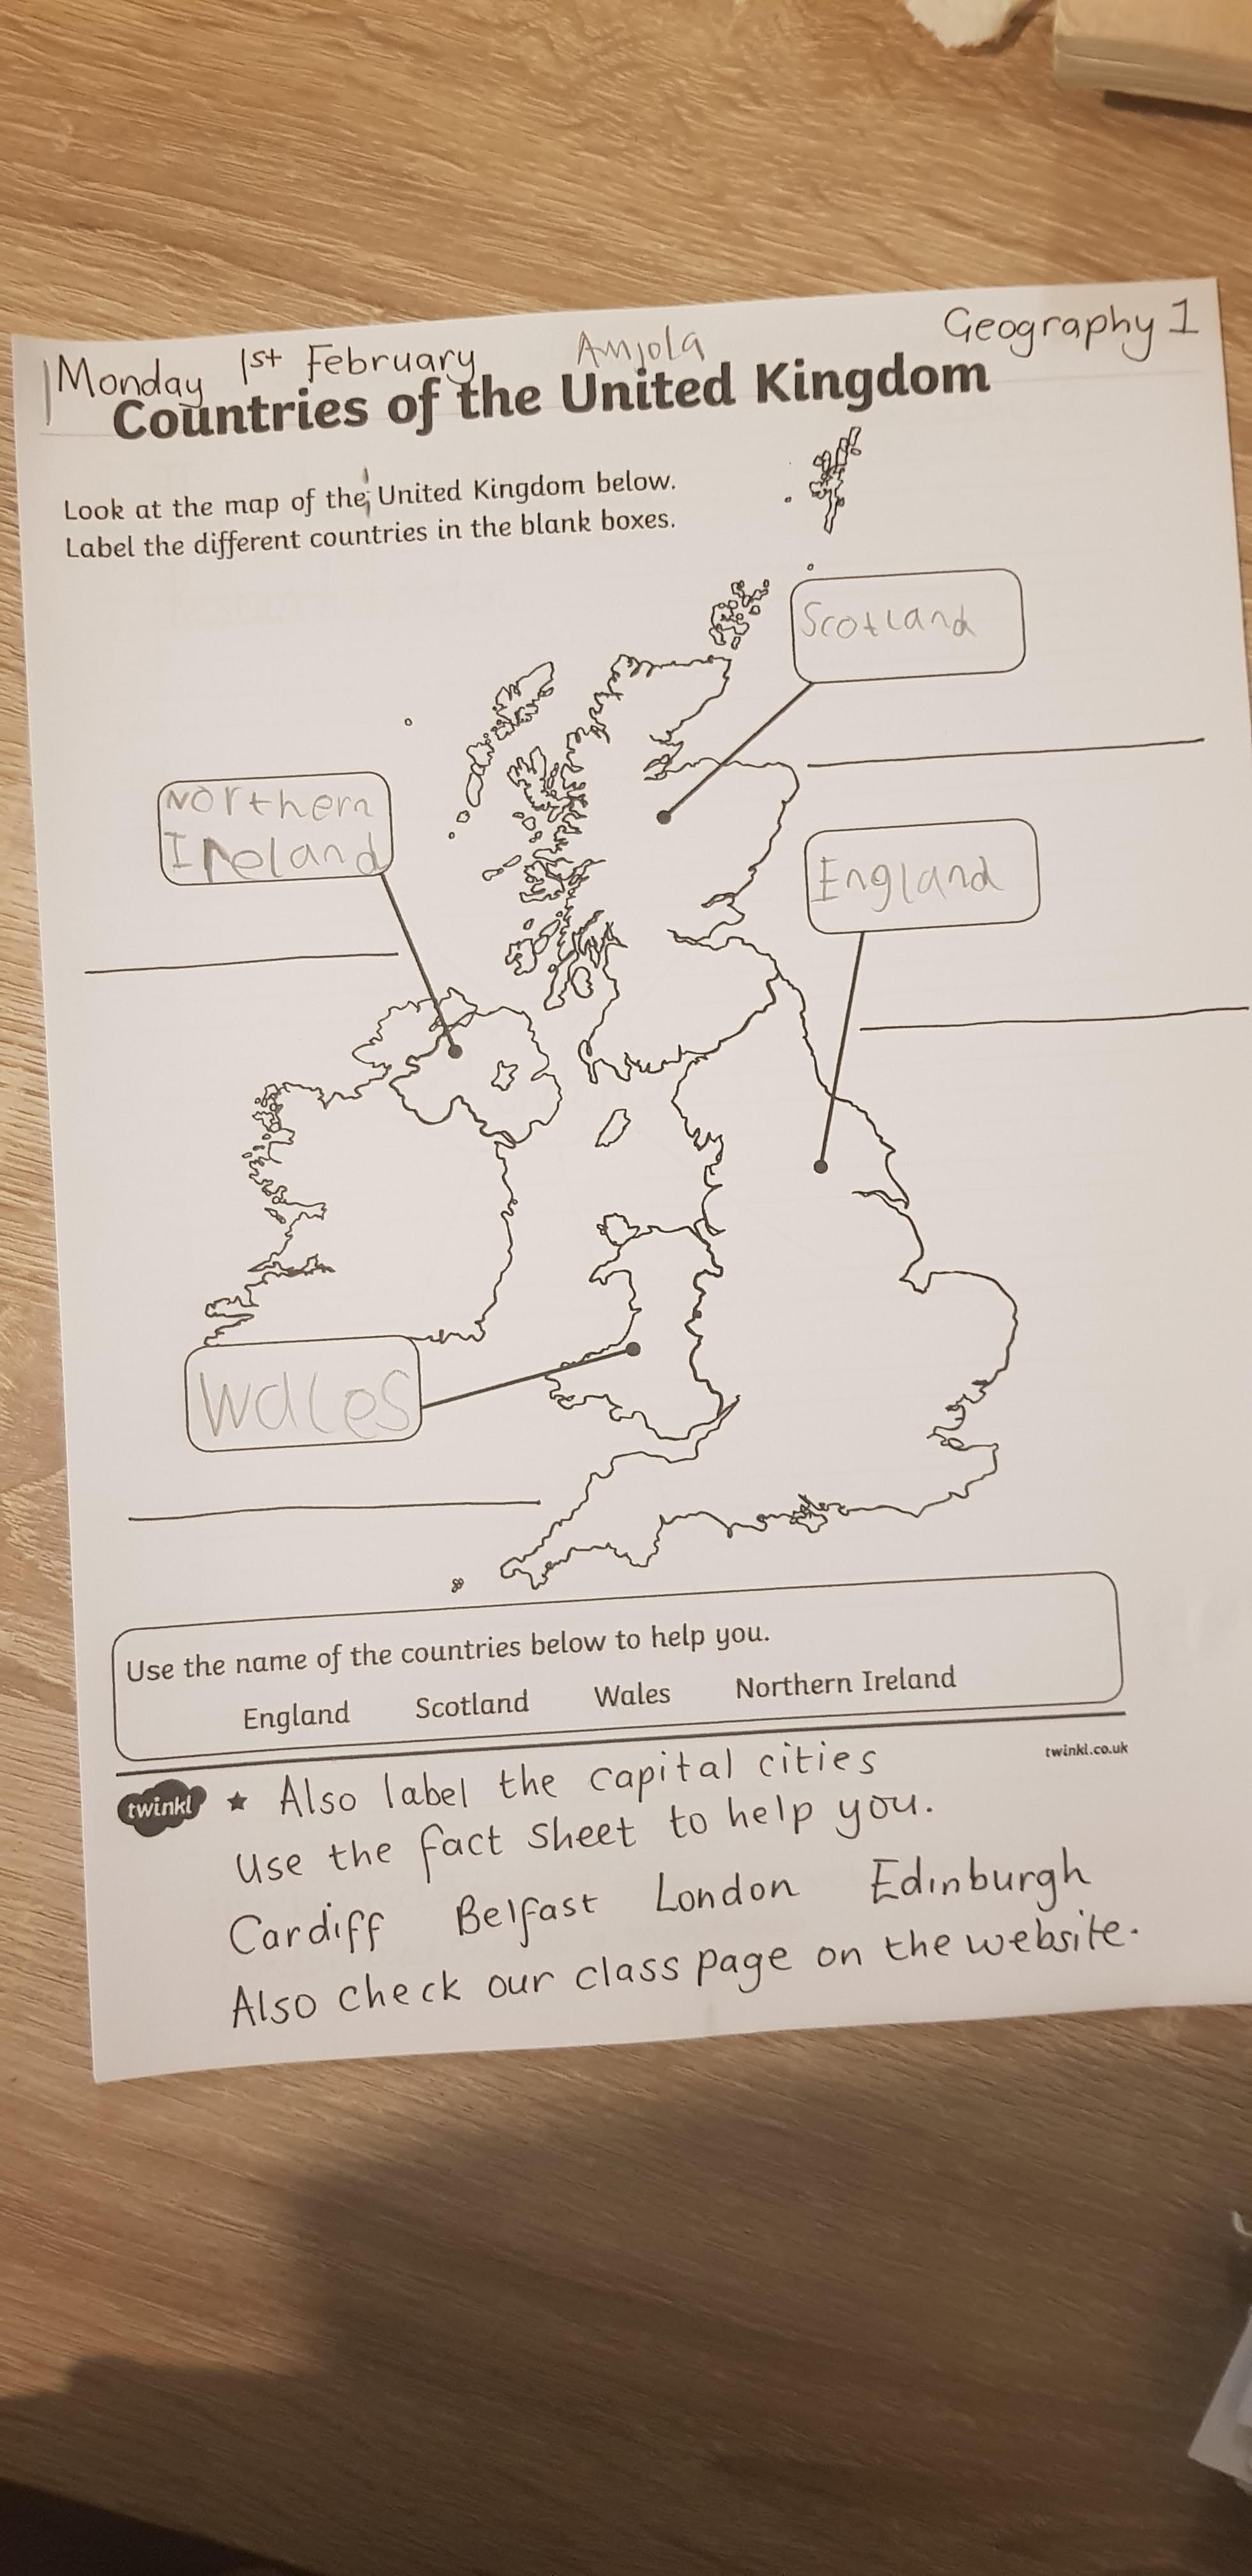 Monday 1st February Anjola Geography 1
Countries of the United Kingdom
Look at the map of the United Kingdom below.
Label the different countries in the blank boxes.
Scotland
Northern
Ireland
England
Wales
Use the name of the countries below to help you.
England Scotland Wales Northern Ireland
twinkl.co.uk
twinkl
★ Also label the capital cities
use the fact sheet to help you.
Cardiff Belfast London Edinburgh
Also check our class page on the website.